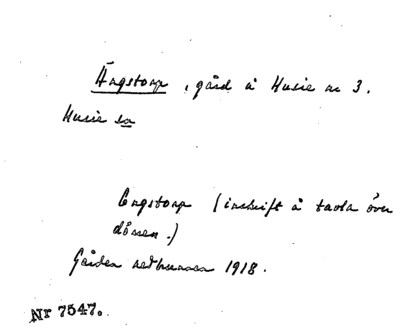 Ängstorp, gård å Husie nr 3.
Husie sn
Engstorp (inskrift å tavla över
dörren.)
Gården nedbrunnen 1918.
Nr 7547.